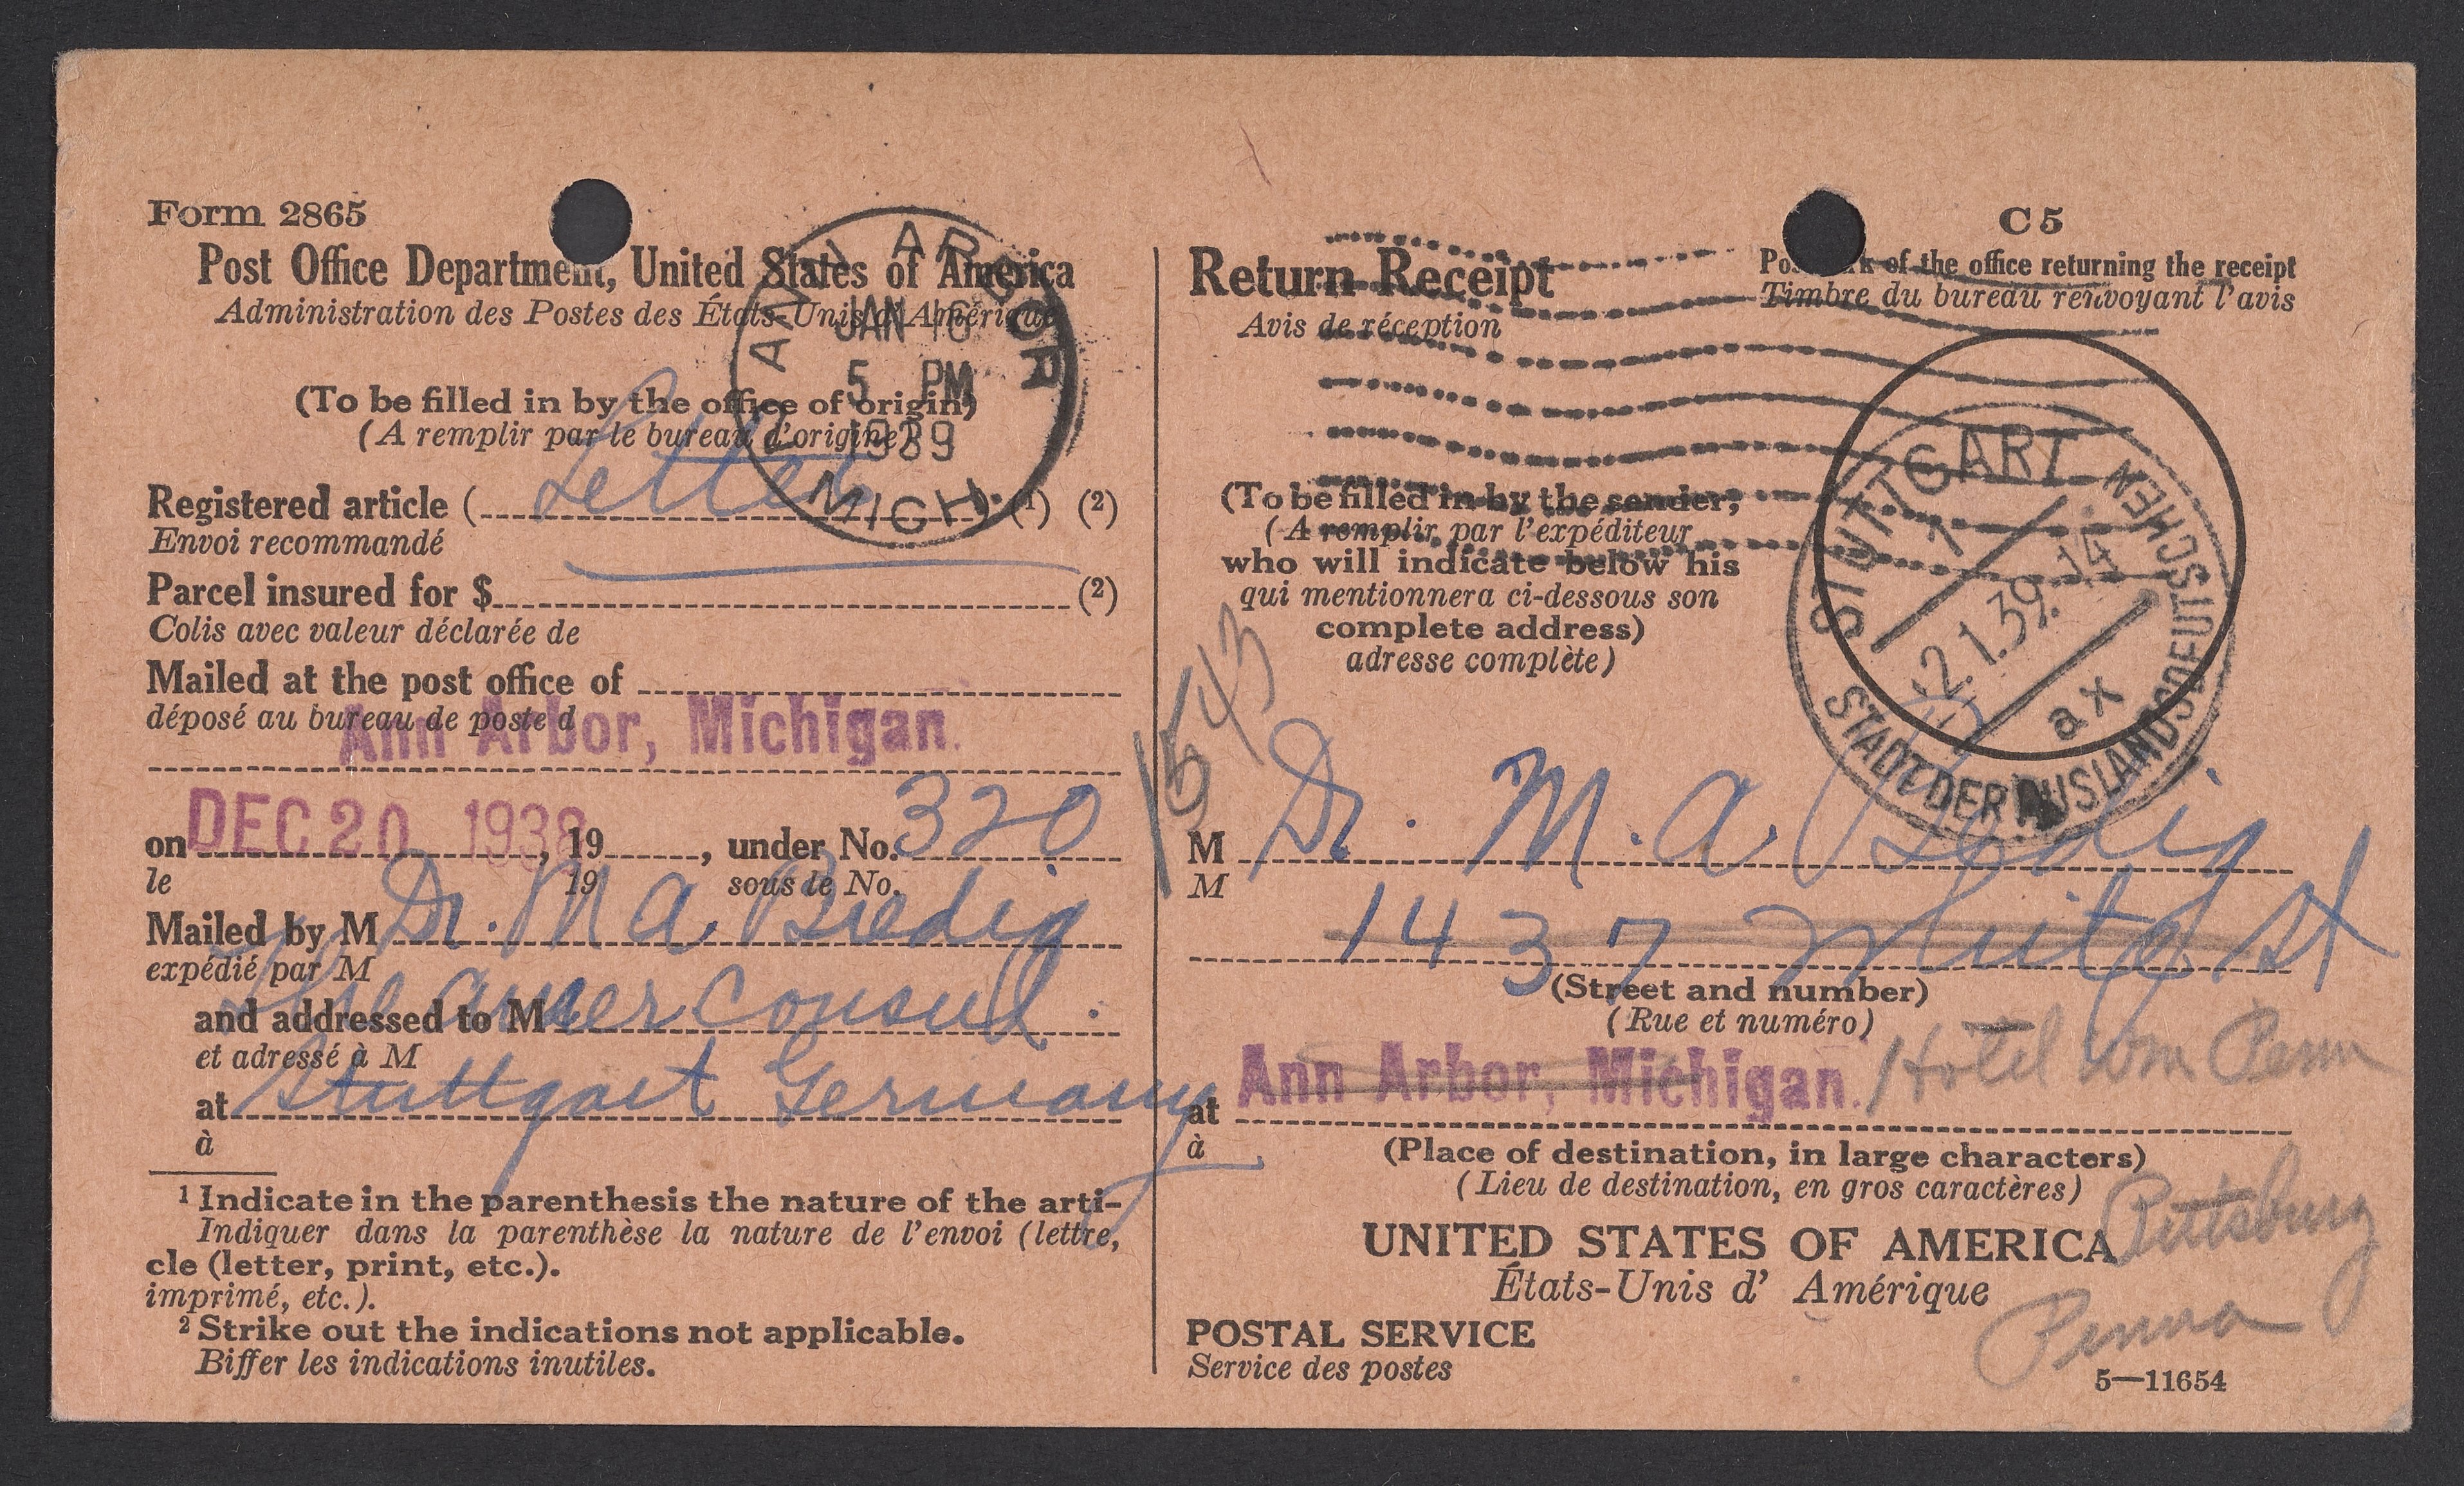 Form 2865
Post Office Department, United States of America
Administration des Postes des États-Unis d'Amérique
ANN ARBOR
JAN 16
5 PM
1939
MICH.
(To be filled in by the office of origin)
(A remplir par le bureau d'origine)
Registered article ( Letter ) (1) (2)
Envoi recommandé
Parcel insured for $ (2)
Colis avec valeur déclarée de
Mailed at the post office of
déposé au bureau de poste d
Ann Arbor, Michigan.
on DEC 20 1938, 19, under No. 320
le 19 sous le No.
Mailed by M Dr. M A Bredig
expédié par M
and addressed to M The Amer Consul
et adressé à M
at Stuttgart Germany
à
1 Indicate in the parenthesis the nature of the arti-
Indiquer dans la parenthèse la nature de l'envoi (lettre,
cle (letter, print, etc.).
imprimé, etc.).
2 Strike out the indications not applicable.
Biffer les indications inutiles.
Return Receipt
Avis de réception
C 5
Postmark of the office returning the receipt
Timbre du bureau renvoyant l'avis
STUTTGART
1
-2.1.39.-14
ax
STADT DER AUSLANDSDEUTSCHEN
(To be filled in by the sender,
(A remplir par l'expéditeur
who will indicate below his
qui mentionnera ci-dessous son
complete address)
adresse complète)
1543
M Dr. M. A. Bredig
M
1437 St
(Street and number)
(Rue et numéro)
at Ann Arbor, Michigan. Hotel Wm Penn
à
(Place of destination, in large characters)
(Lieu de destination, en gros caractères)
Pittsburg
UNITED STATES OF AMERICA
États-Unis d' Amérique
Penna
POSTAL SERVICE
Service des postes
5—11654